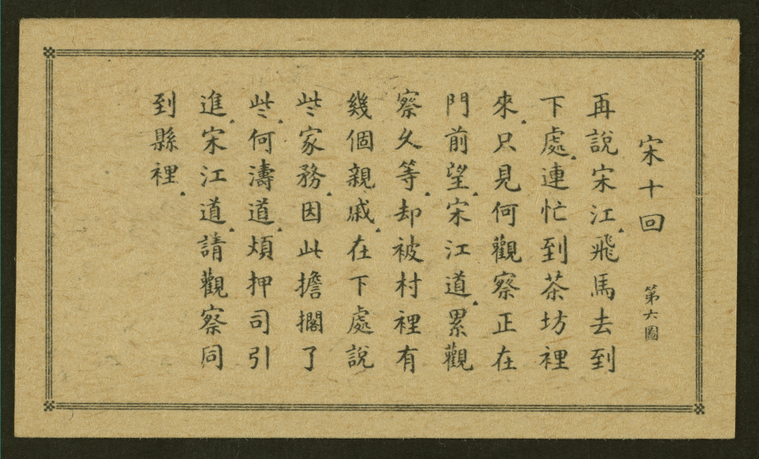 宋十回
第六圖
再說宋江.飛馬去到
下處.連忙到茶坊裡
來.只見何觀察正在
門前望.宋江道.累觀
察久等.却被村裡有
幾個親戚.在下處說
些家務.因此擔擱了
些.何濤道.煩押司引
進.宋江道.請觀察同
到縣裡.